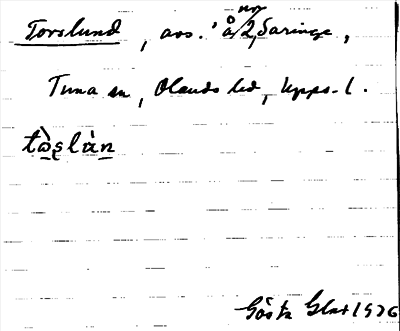 Torslund, avs. å nr 2, Saringe,
Tuna sn, Olands hd, Upps. l.
Gösta 1976